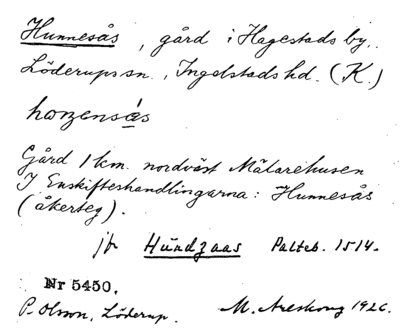 Hunnesås, gård i Hagestads by,
Löderups sn., Ingelstads hd. (K.)
honzensås
Gård 1 km. nordväst Mälarehusen
I Enskifteshandlingarna: Hunnesås
(åkerteg).
jfr Hŭndzaas Palteb. 1514.
Nr 5450.
P. Olsson, Löderup. M. Areskoug 1926.